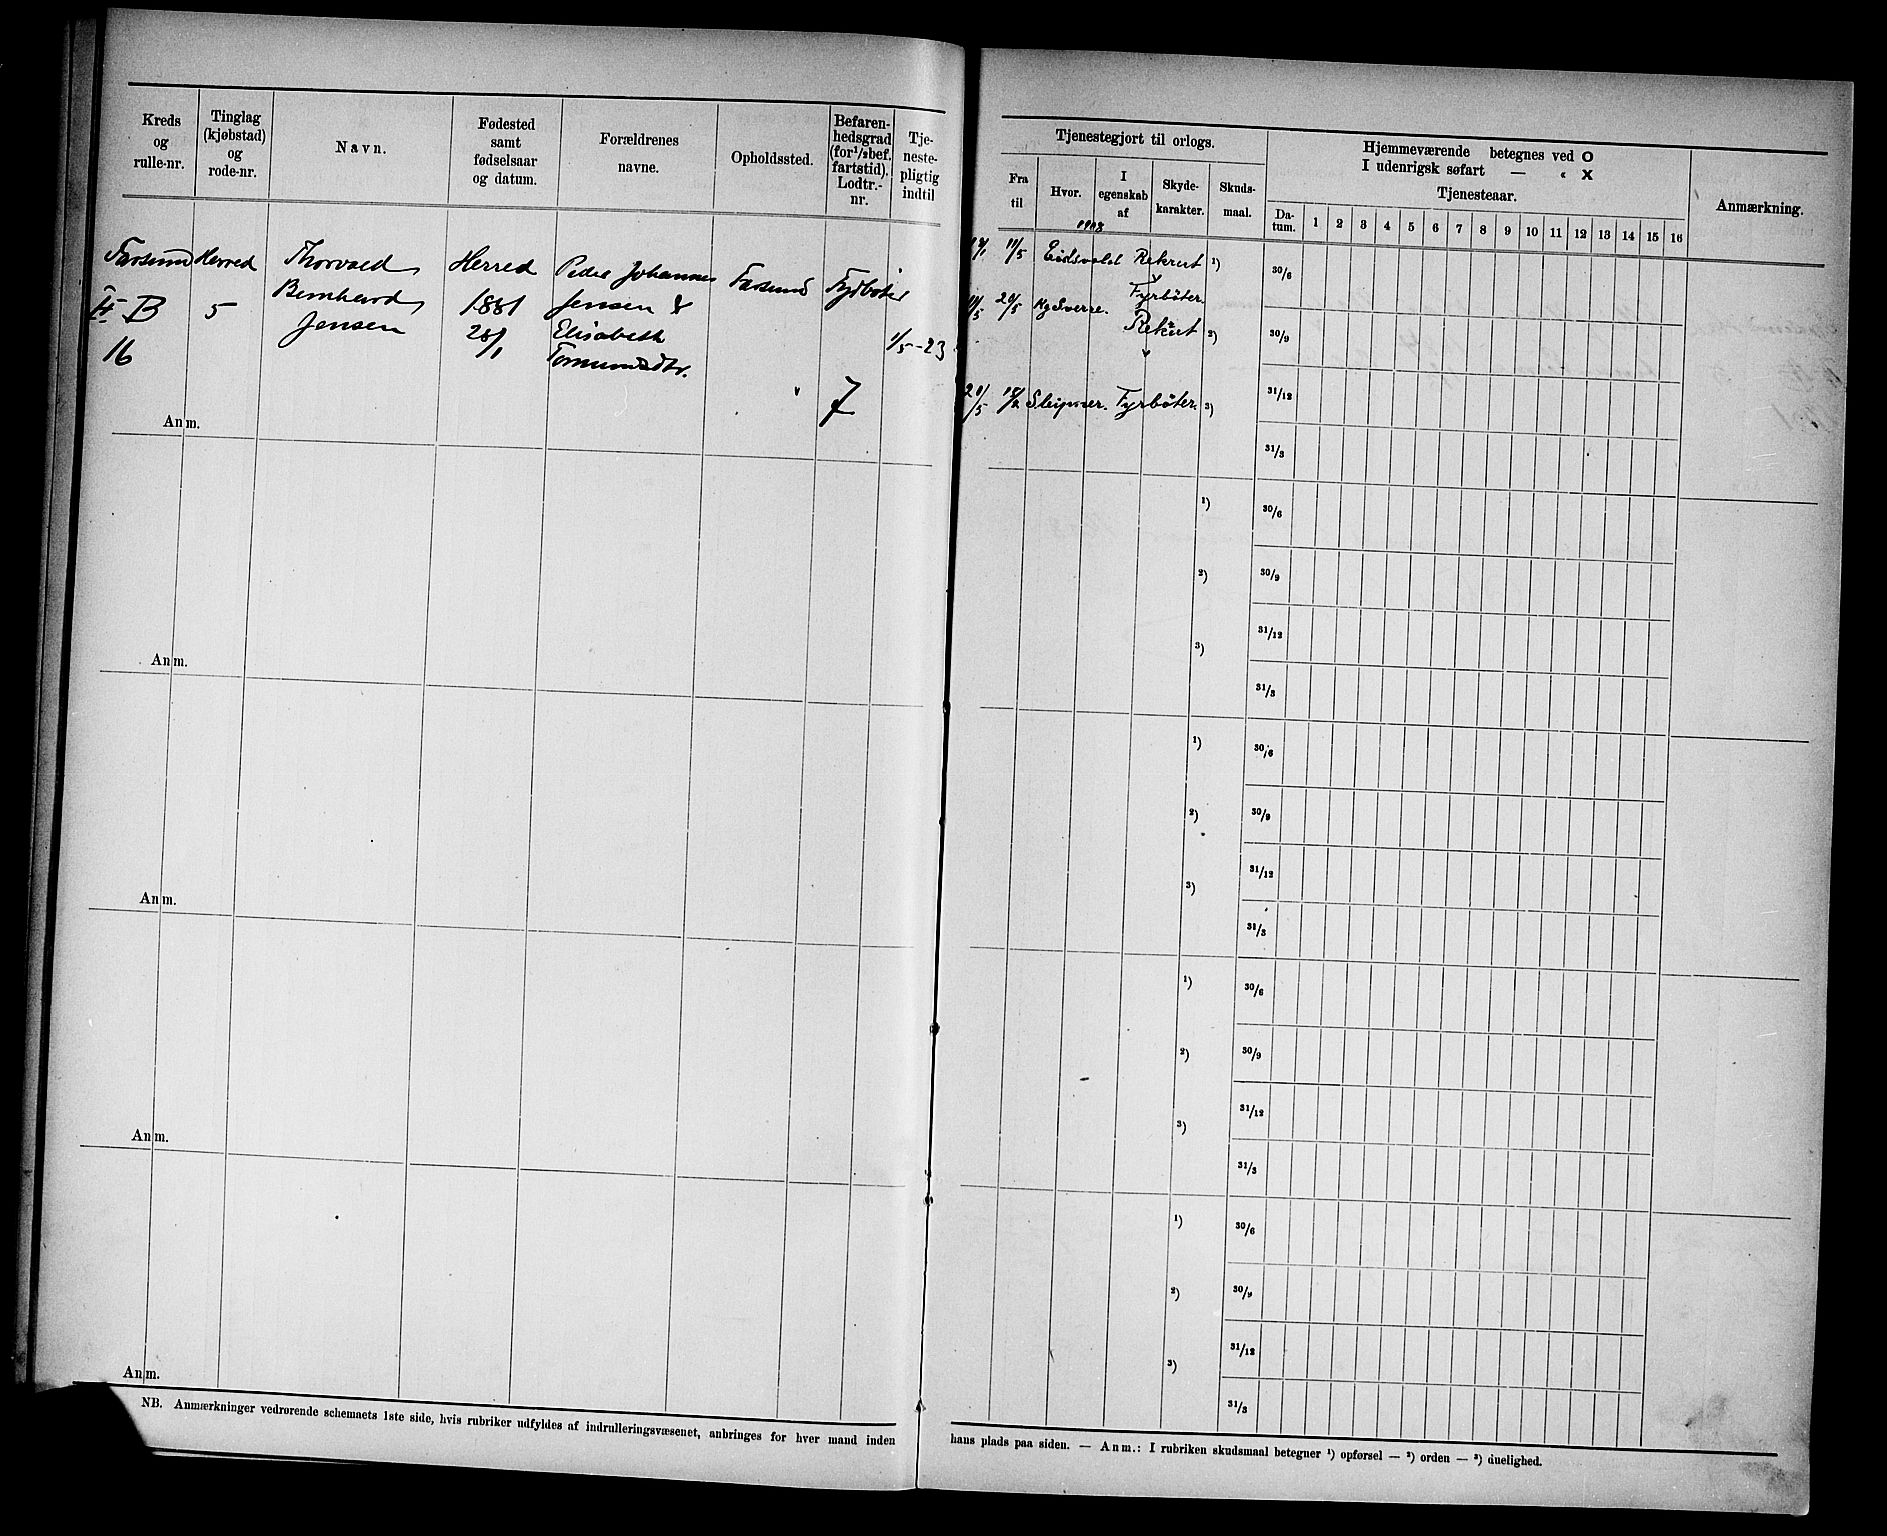 Kreds
og
rulle-nr.
Tinglag
(kjøbstad)
og
rode-nr.
Navn.
Fødested
samt
fødselsaar
og datum.
Forældrenes
navne.
Opholdssted.
Befaren-
hedsgrad
(for 1/2 bef.
fartstid).
Lodtr.-
nr.
Tje-
neste-
pligtig
indtil
Farsund
II B
16
Herred
5
Thorvald
Bernhard
Jensen
Herred
1881
28/1
Peder Johannes
Jensen &
Elisabeth
Farsund
7
1/5-23
Anm.
Anm.
Anm.
Anm.
Anm.
NB. Anmærkninger vedrørende schemaets 1ste side, hvis rubriker udfyldes af indrulleringsvæsenet, anbringes for hver mand inden
Tjenestegjort til orlogs.
Fra
til
Hvor.
I
egenskab
af
Skyde-
karakter.
Skuds-
maal.
Hjemmeværende betegnes ved O
I udenrigsk søfart — « X
Tjenesteaar.
Da-
tum.
1 2 3 4 5 6 7 8 9 10 11 12 13 14 15 16
Anmærkning.
1903
11/5 Eidsvold Rekrut 1) 30/6
Fyrbøter.
11/5 20/5 Kg Sverre.
Rekrut 2) 30/9
18/2 Sleipner. Fyrbøter. 3) 31/12
31/3
1) 30/6
2) 30/9
3) 31/12
31/3
1) 30/6
2) 30/9
3) 31/12
31/3
1) 30/6
2) 30/9
3) 31/12
31/3
1) 30/6
2) 30/9
3) 31/12
31/3
hans plads paa siden. — Anm.: I rubriken skudsmaal betegner 1) opførsel — 2) orden — 3) duelighed.